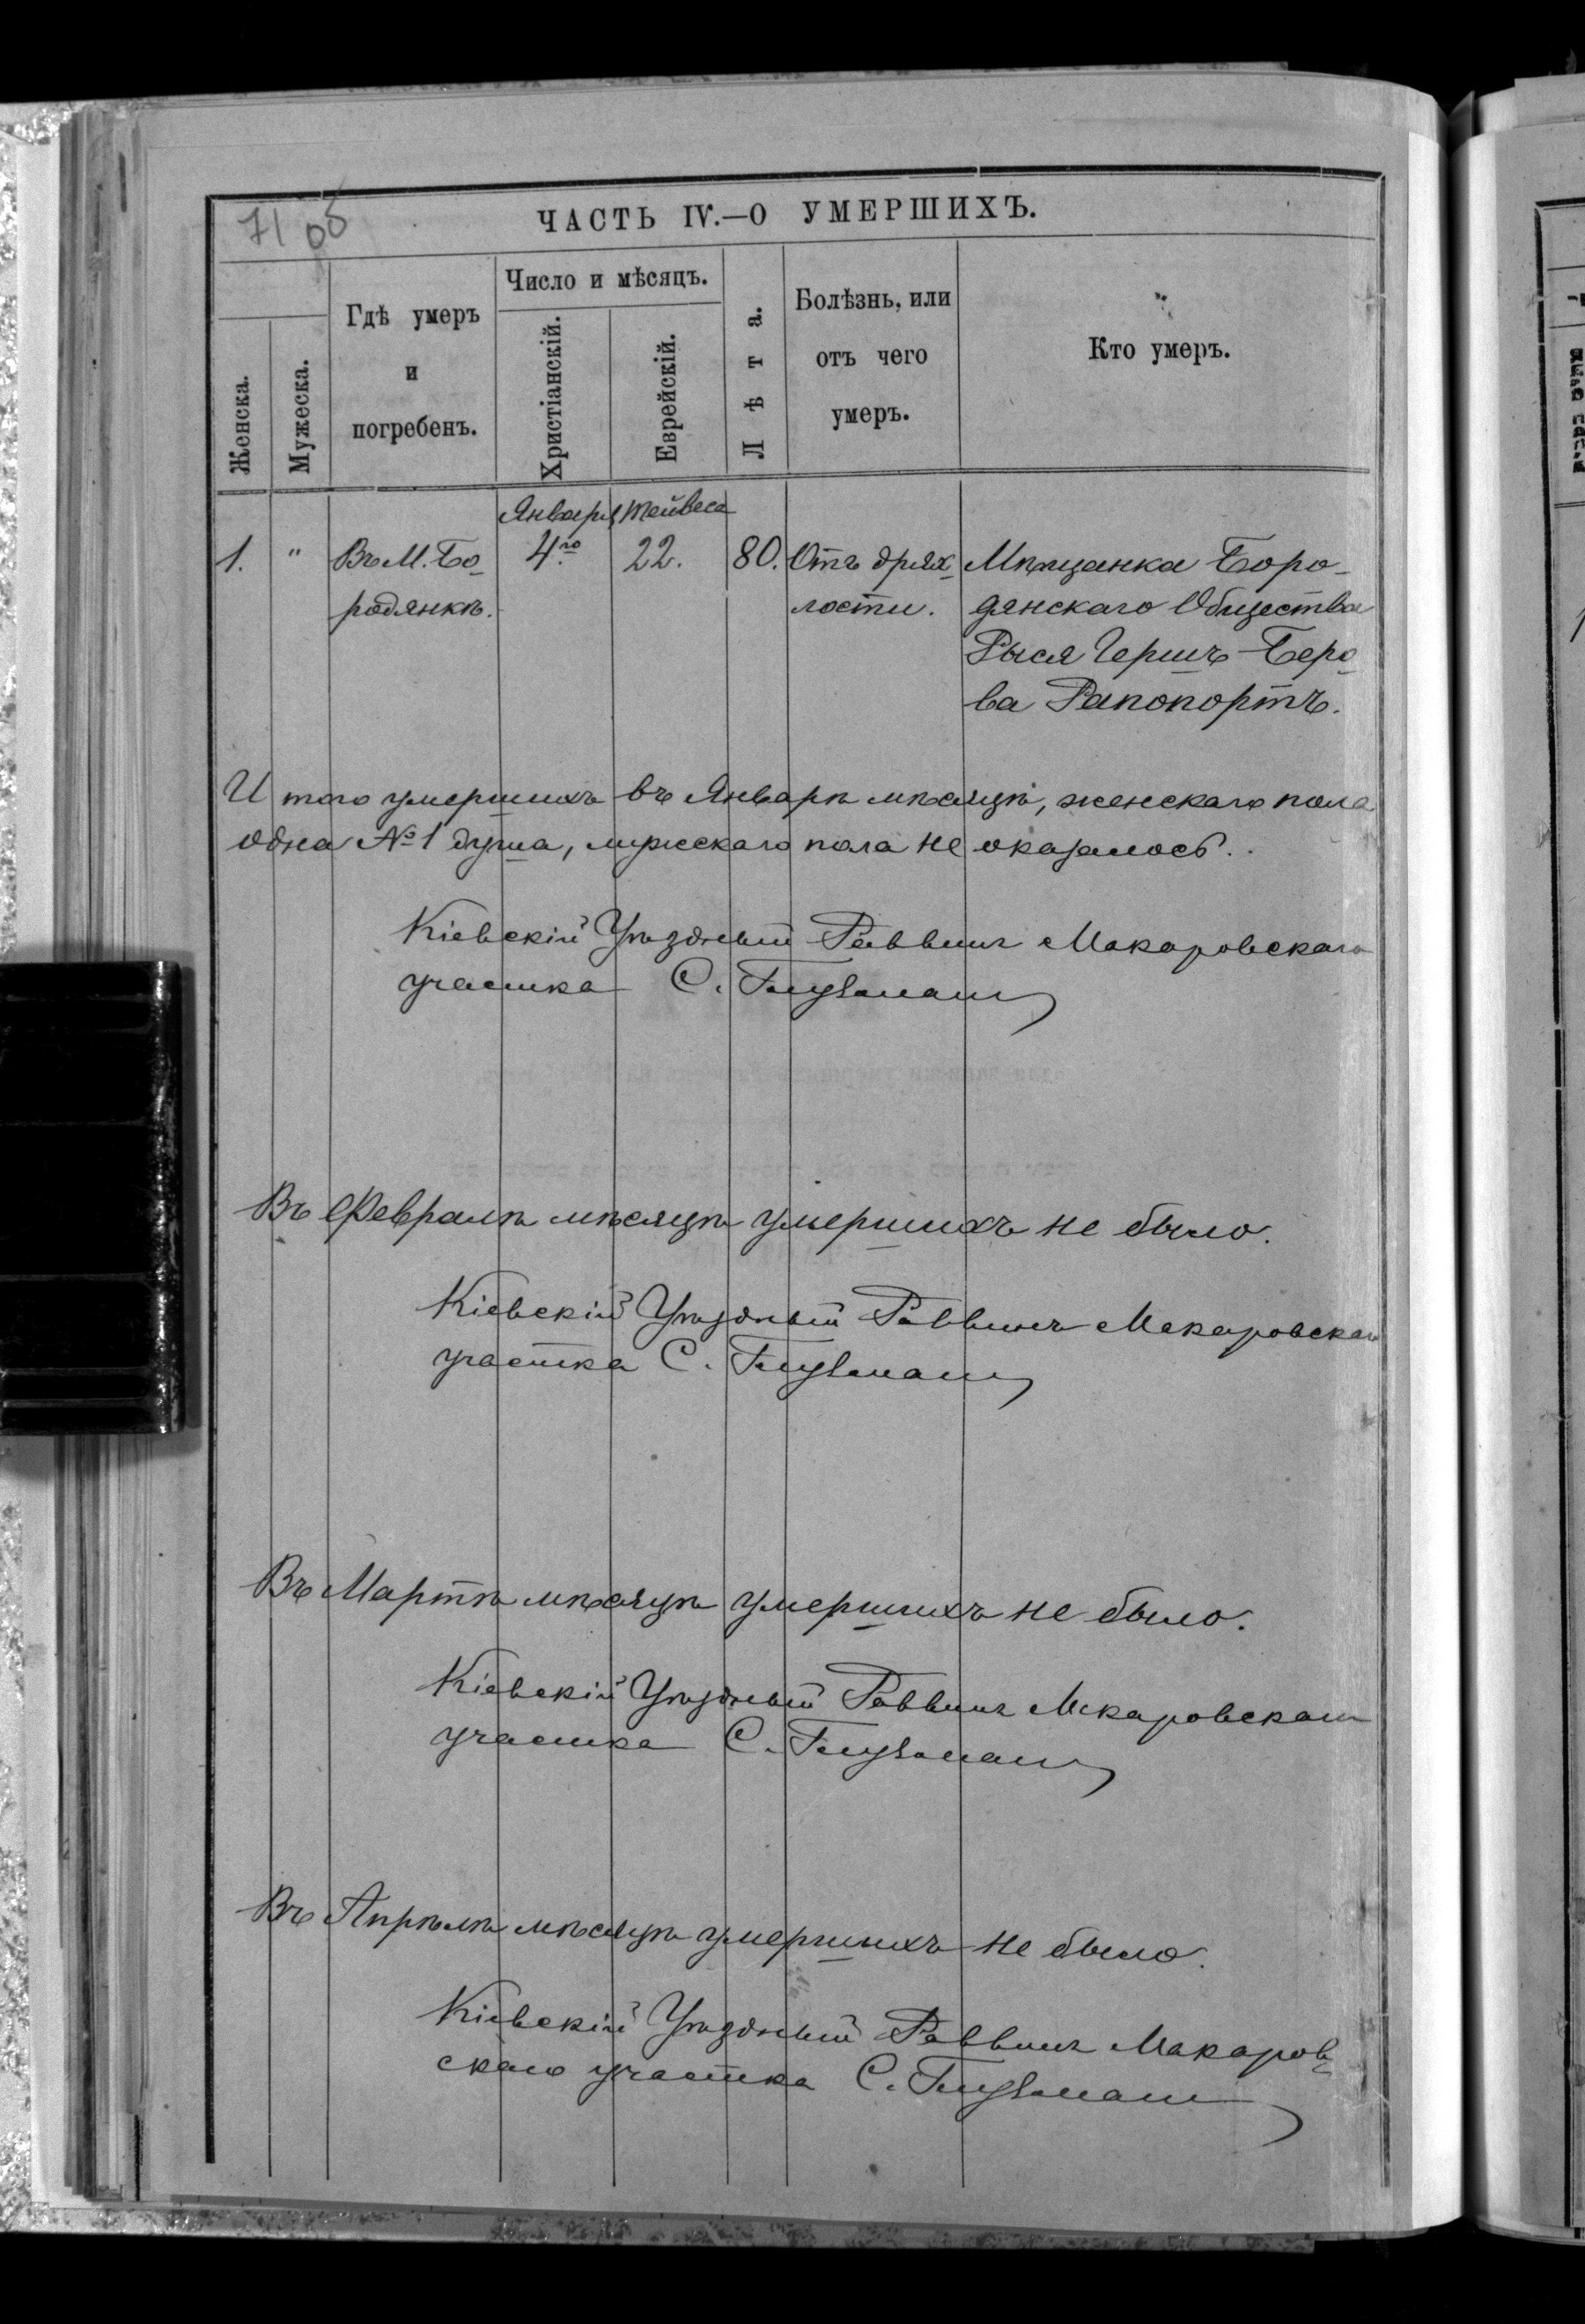 71 об
ЧАСТЬ IV.—О УМЕРШИХЪ.
Женска.
Мужеска.
Гдѣ умеръ
и
погребенъ.
Число и мѣсяцъ.
Христіанскій.
Еврейскій.
Лѣта.
Болѣзнь, или
отъ чего
умеръ.
Кто умеръ.
Января Тейвеса
1. " Въ М. Бо- 4го 22. 80. Отъ дрях- Мѣщанка Боро-
родянкѣ. лости. дянскаго Общества
Рыся Гершъ-Беро-
ва Рапопортъ.
И того умершихъ въ Январѣ мѣсяцѣ, женскаго пола
одна № 1 душа, мужескаго пола не оказалось.
Кіевскій Уѣздный Раввинъ Макаровскаго
участка С.
Въ Февралѣ мѣсяцѣ умершихъ не было.
Кіевскій Уѣздный Раввинъ Макаровскаго
участка С.
Въ Мартѣ мѣсяцѣ умершихъ не было.
Кіевскій Уѣздный Раввинъ Макаровскаго
участка С.
Въ Апрѣлѣ мѣсяцѣ умершихъ не было.
Кіевскій Уѣздный Раввинъ Макаров-
скаго участка С.